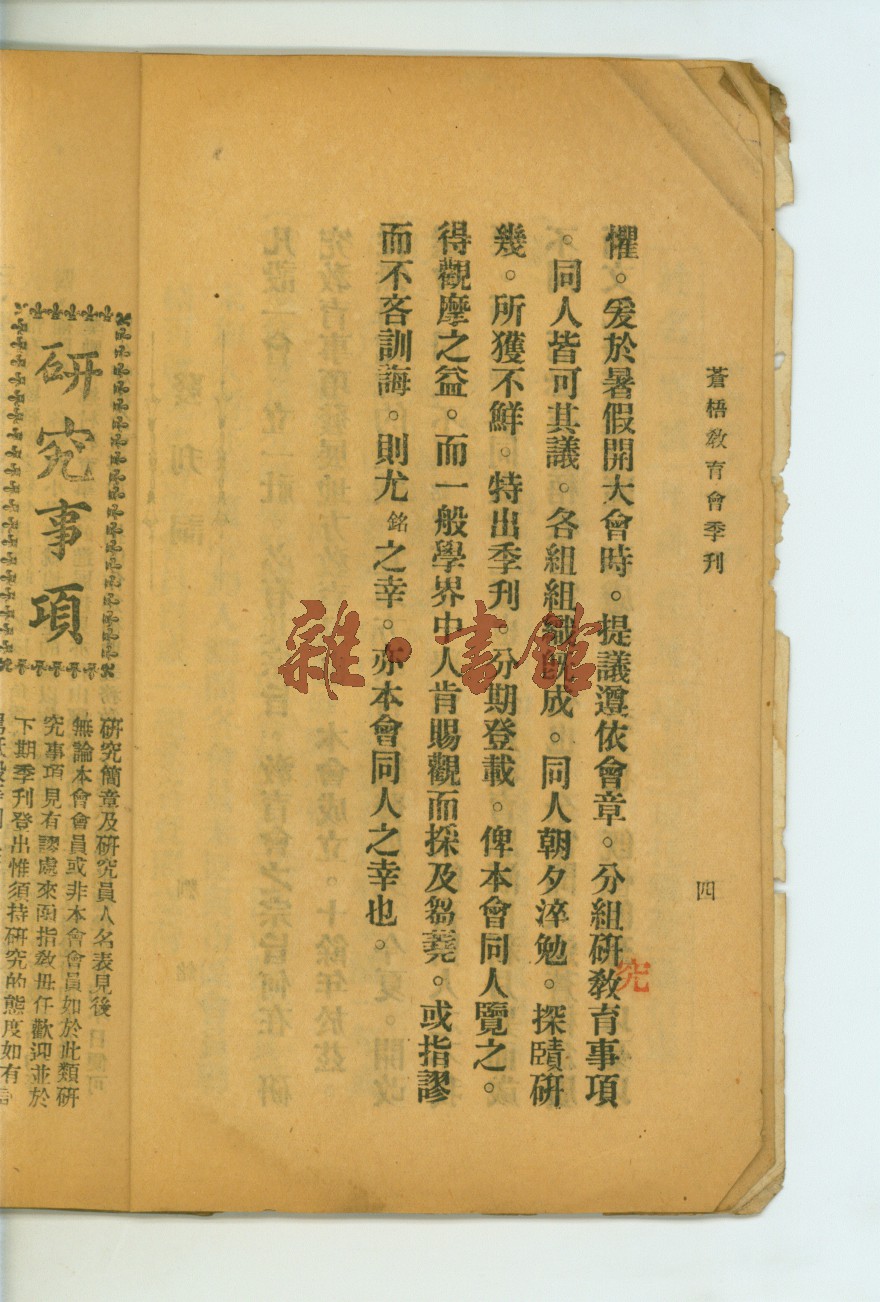 蒼梧教育會季刊
四
懼。爰於暑假開大會時。提議遵依會章。分組研教育事項
究
。同人皆可其議。各組組織旣成。同人朝夕淬勉。探賾研
幾。所獲不鮮。特出季刊。分期登載。俾本會同人覽之。
得觀摩之益。而一般學界中人肯賜觀而採及芻蕘。或指謬
而不吝訓誨。則尤銘之幸。亦本會同人之幸也。
雜·書館
研究事項
研究簡章及研究員人名表見後
無論本會會員或非本會會員如於此類研
究事項見有謬處來函指敎毋任歡迎並於
下期季刊登出惟須持研究的態度如有